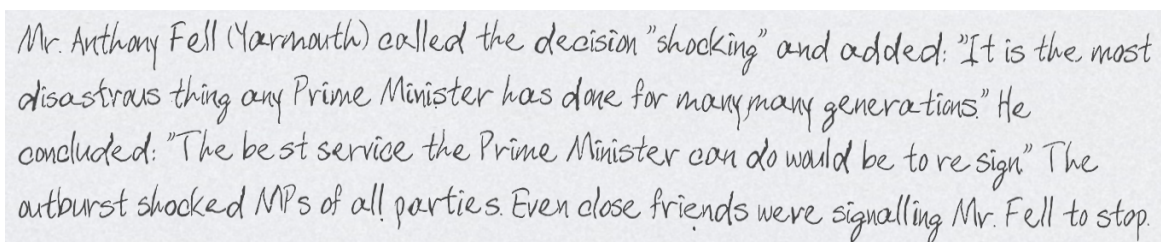 Mr. Anthony Fell (Yarmouth) called the decision "shocking" and added: "It is the most
disastrous thing any Prime Minister has done for many many generations." He
concluded: "The best service the Prime Minister can do would be to resign" The
outburst shocked MPs of all parties. Even close friends were signalling Mr. Fell to stop.